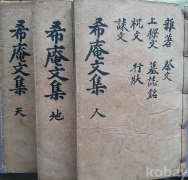 雜著 祭文
上樑文 墓誌銘
祝文 行狀
誄文
希庵文集 人
希庵文集 地
希庵文集 天